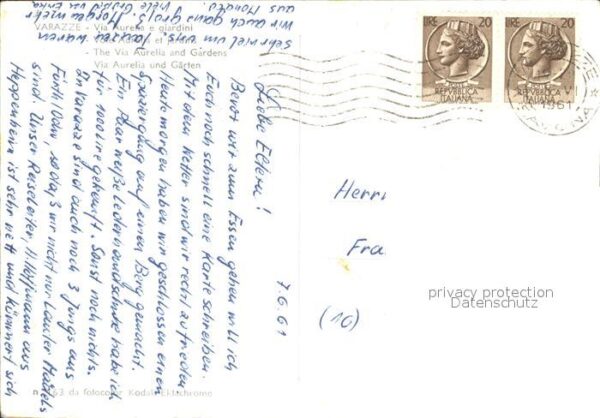 VARAZZE - Via Aurelia e giardini
- The Via Aurelia and Gardens
Via Aurelia und Gärten
LIRE 20
POSTE
REPVBBLICA
ITALIANA
LIRE 20
POSTE
REPVBBLICA
ITALIANA
1961
7.6.61
Liebe Eltern!
Bevor wir zum Essen gehen will ich
Euch noch schnell eine Karte schreiben.
Mit dem Wetter sind wir recht zufrieden
Heute morgen haben wir geschlossen einen
Spaziergang auf einen Berg gemacht.
Ein Paar weiße Lederhandschuhe habe ich
für 1000 Lire gekauft. Sonst noch nichts.
In Varazze sind auch noch 3 Jungs aus
Fürth Odw, so daß wir nicht nur lauter Mädels
sind. Unser Reiseleiter, H. Hoffmann aus
Heppenheim ist sehr nett und kümmert sich
sehr viel um uns. Morgen
wir auch ganz groß.
aus
viele Grüße von Erika
Herrn
Fra
(10)
n. 63 da fotocolor Kodak Ektachrome
privacy protection
Datenschutz